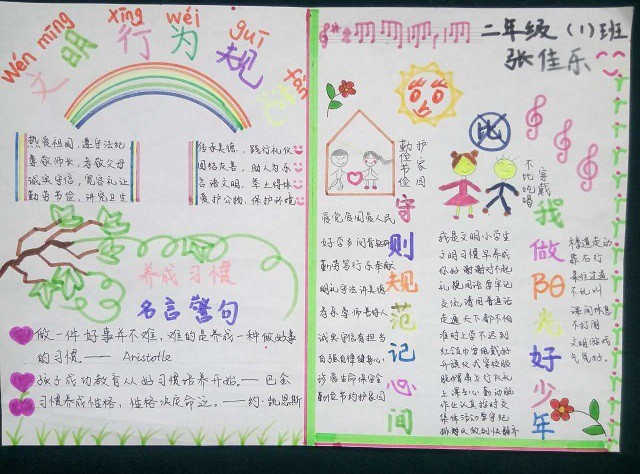 wén míng xíng wéi guī fàn
文明行为规范
热爱祖国，遵守法纪
尊敬师长，孝敬父母
诚实守信，宽容礼让
勤劳节俭，讲究卫生
传承美德，践行礼仪
团结友善，助人为乐
言语文明，举止得体
爱护公物，保护环境
养成习惯
名言警句
做一件好事并不难，难的是养成一种做好事
的习惯．—— Aristotle
孩子成功教育从好习惯培养开始．—— 巴金
习惯养成性格，性格决定命运．——约·凯恩斯
二年级（1）班
张佳乐
勤俭节俭
护家园
比
不比吃喝
穿戴
守则规范记心间
爱党爱国爱人民
好学多问肯钻研
勤劳笃行乐奉献
明礼守法讲美德
孝亲尊师善待人
诚实守信有担当
自强自律健身心
珍爱生命保安全
勤俭节约护家园
我做阳光好少年
我是文明小学生
文明习惯早养成
你好谢谢对不起
礼貌用语要牢记
交流请用普通话
走遍天下都不怕
准时上学不迟到
红领巾要佩戴好
升旗仪式穿校服
上课专心勤动脑
作业认真按时交
集体活动守纪
楼道走动
靠右行
课间休息
不打闹
文明游戏
气氛好．